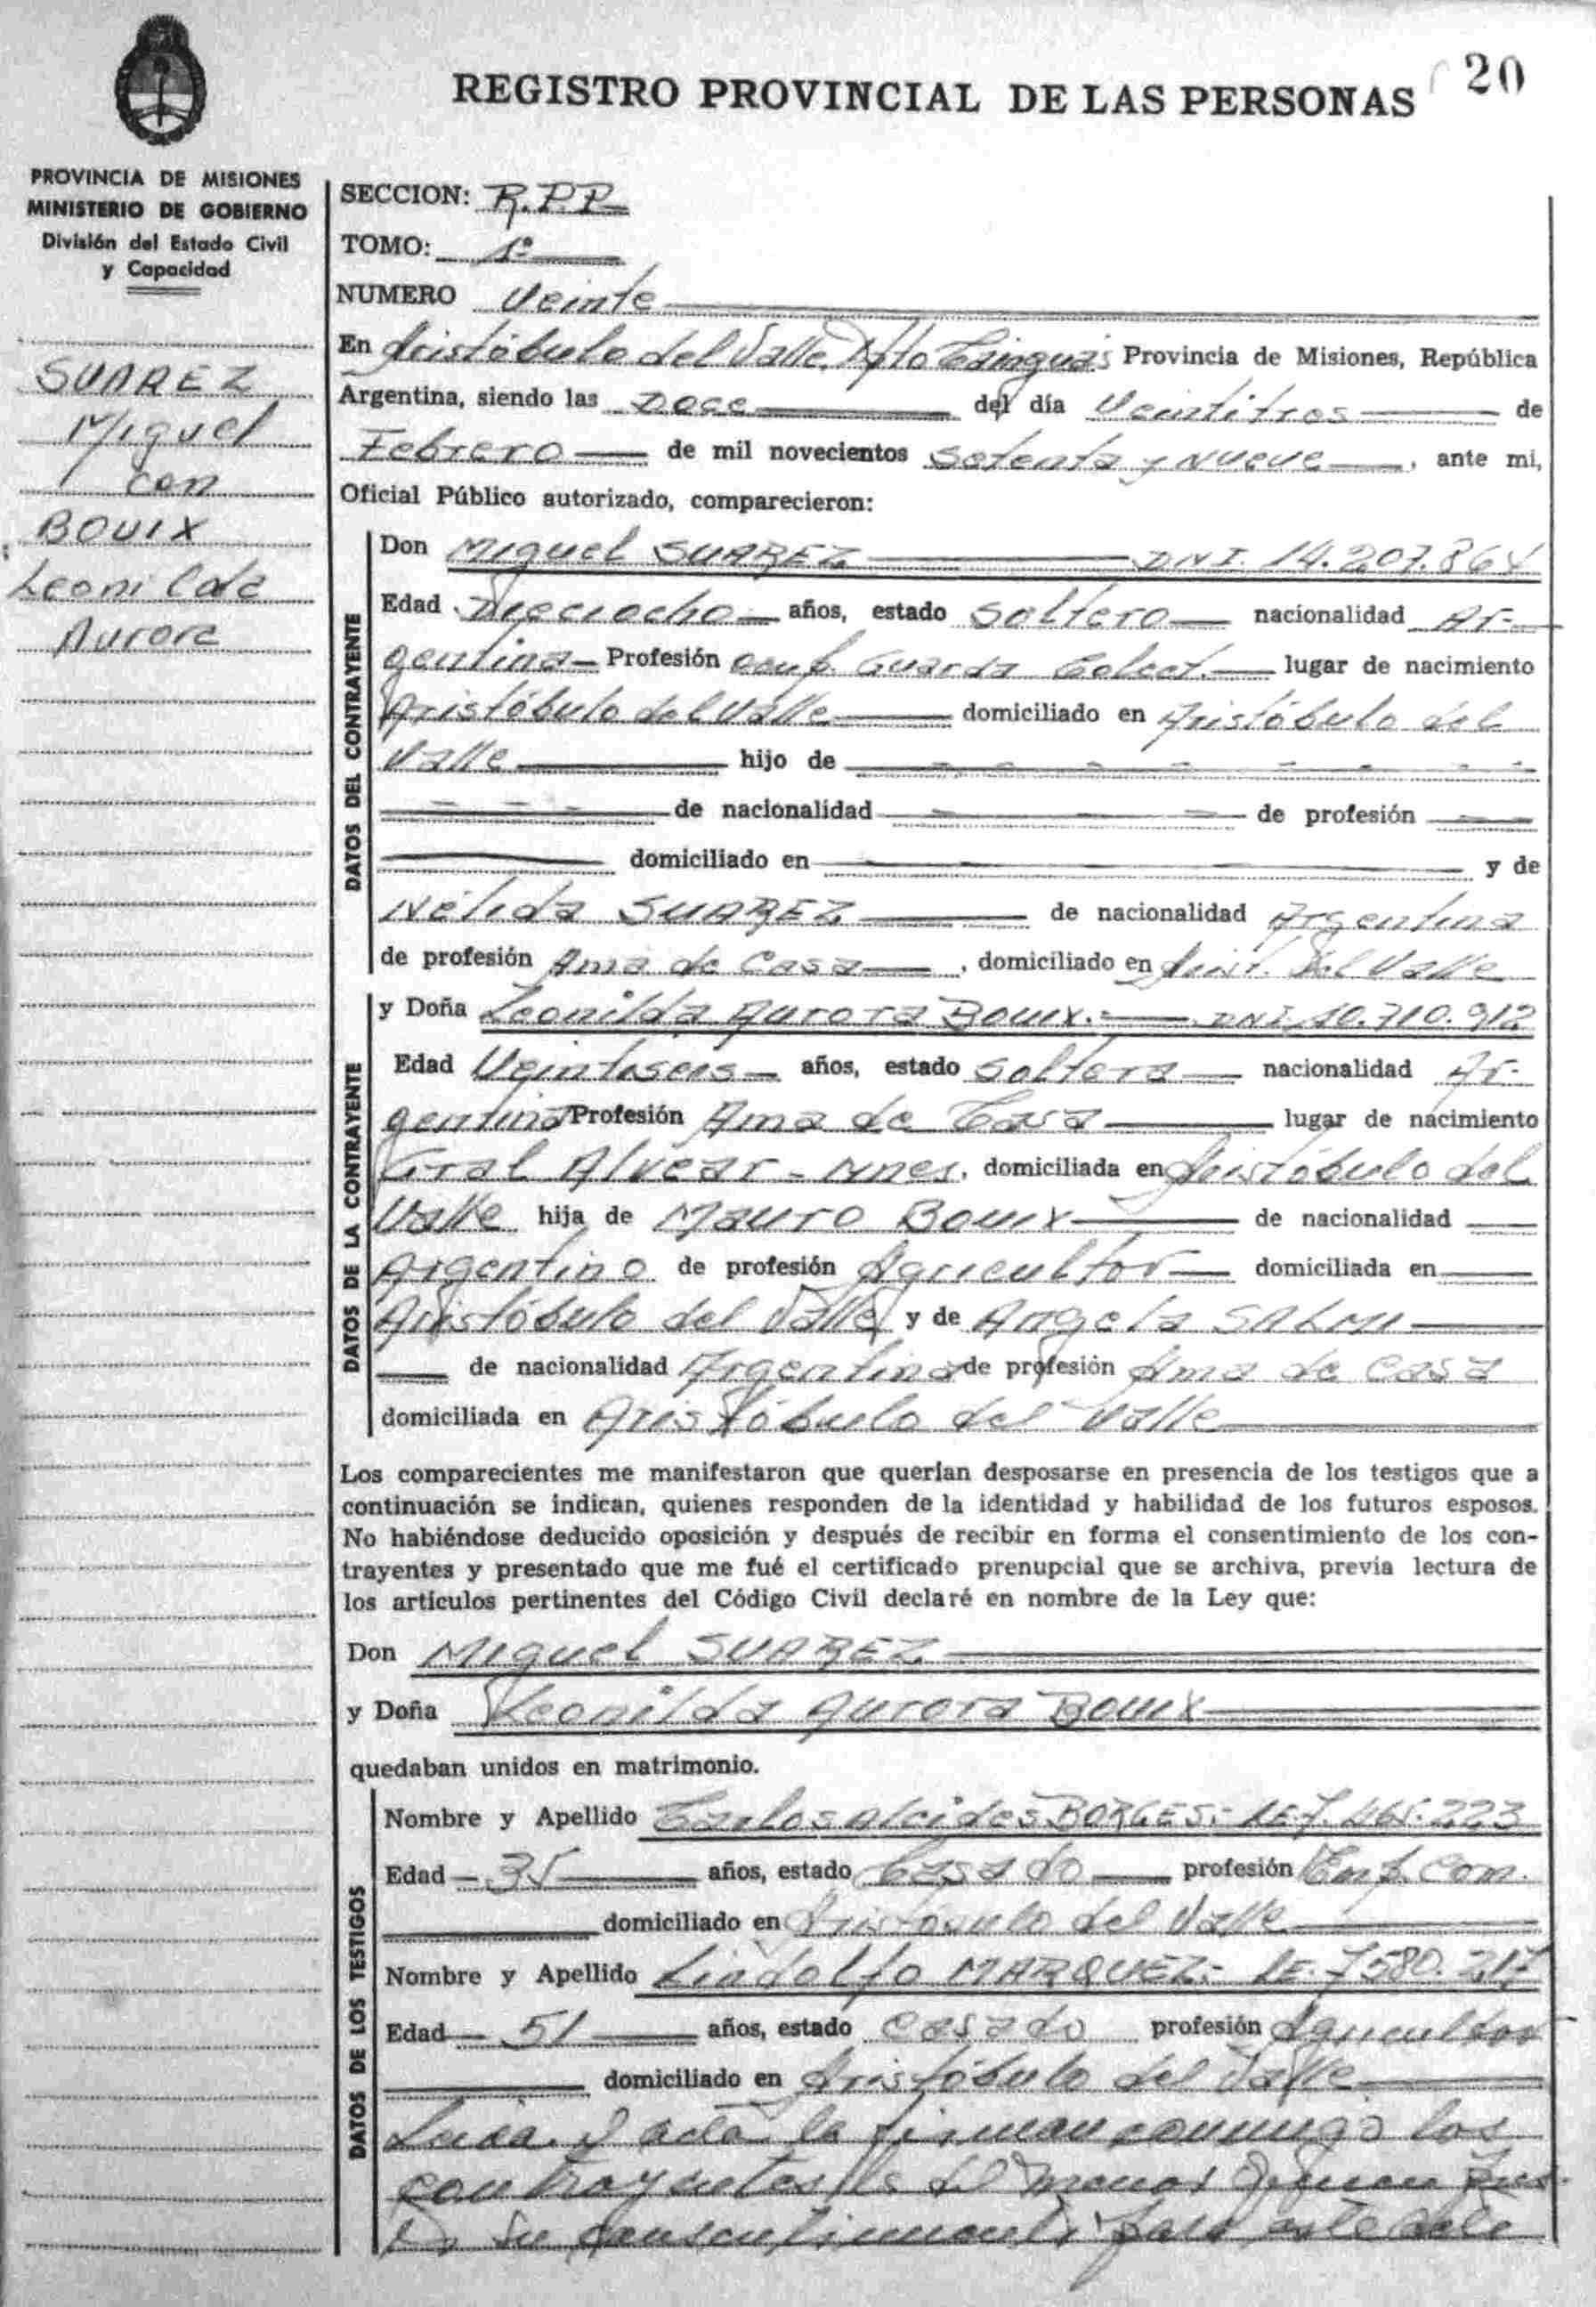 REGISTRO PROVINCIAL DE LAS PERSONAS
20
PROVINCIA DE MISIONES
MINISTERIO DE GOBIERNO
División del Estado Civil
y Capacidad
SUAREZ
Miguel
con
BOUIX
Leonilda
Aurora
SECCION: R.P.P.
TOMO: 1º
NUMERO Veinte
En Aristóbulo del Valle, Dpto Cainguás Provincia de Misiones, República
Argentina, siendo las Doce del día Veintitres de
Febrero de mil novecientos Setenta y Nueve, ante mi,
Oficial Público autorizado, comparecieron:
DATOS DEL CONTRAYENTE
Don Miguel SUAREZ DNI. 14.207.864
Edad Dieciocho años, estado Soltero nacionalidad Ar-
gentina Profesión Guarda lugar de nacimiento
Aristóbulo del Valle domiciliado en Aristóbulo del
Valle hijo de
de nacionalidad de profesión
domiciliado en y de
Nélida SUAREZ de nacionalidad Argentina
de profesión Ama de Casa, domiciliado en Arist. del Valle
DATOS DE LA CONTRAYENTE
y Doña Leonilda Aurora Bouix.- DNI 10.710.912
Edad Veintiseis años, estado Soltera nacionalidad Ar-
gentina Profesión Ama de Casa lugar de nacimiento
Gral Alvear - Mnes, domiciliada en Aristóbulo del
Valle hija de Mauro Bouix de nacionalidad
Argentino de profesión Agricultor domiciliada en
Aristóbulo del Valle y de Angela
de nacionalidad Argentina de profesión Ama de Casa
domiciliada en Aristóbulo del Valle
Los comparecientes me manifestaron que querían desposarse en presencia de los testigos que a
continuación se indican, quienes responden de la identidad y habilidad de los futuros esposos.
No habiéndose deducido oposición y después de recibir en forma el consentimiento de los con-
trayentes y presentado que me fué el certificado prenupcial que se archiva, previa lectura de
los artículos pertinentes del Código Civil declaré en nombre de la Ley que:
Don Miguel SUAREZ
y Doña Leonilda Aurora Bouix
quedaban unidos en matrimonio.
DATOS DE LOS TESTIGOS
Nombre y Apellido Carlos Alcides BORGES.- LE
Edad 35 años, estado Casado profesión Emp. Com.
domiciliado en Aristóbulo del Valle
Nombre y Apellido Lindolfo MARQUEZ.- LE. 7580.217
Edad 51 años, estado Casado profesión Agricultor
domiciliado en Aristóbulo del Valle
Leida el acta la firman conmigo los
contrayentes del menor
su consentimiento para este acto